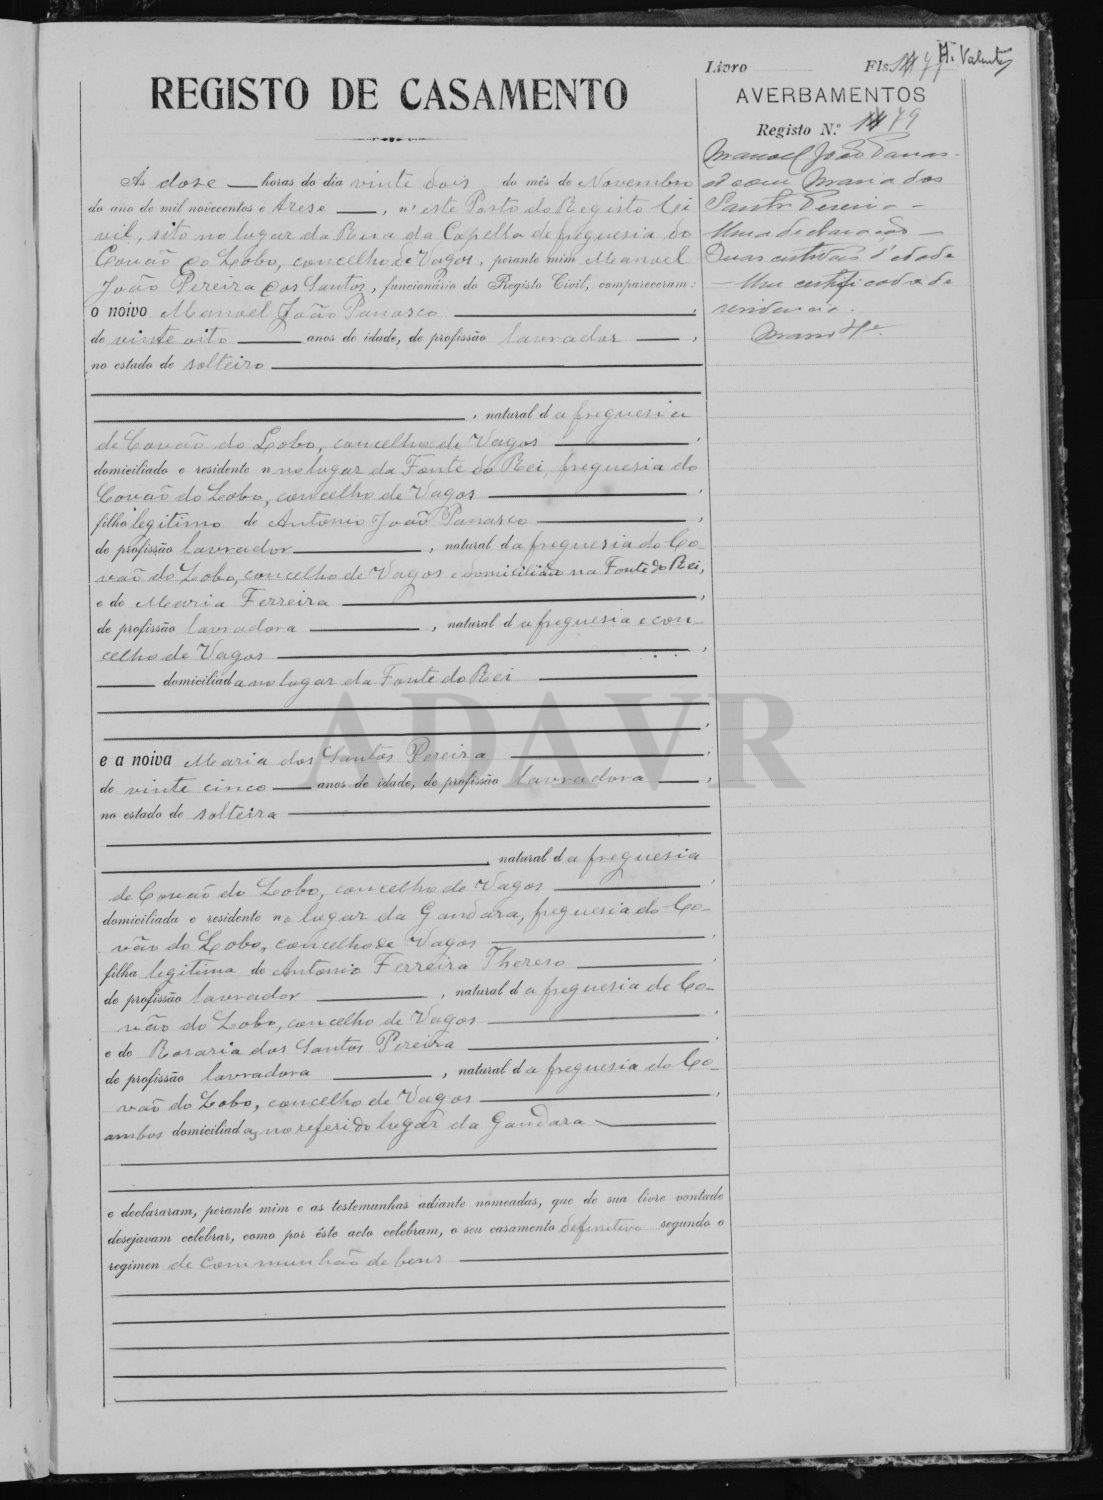 Livro Fls. 77 A. Valente
REGISTO DE CASAMENTO
AVERBAMENTOS
Registo N.º 79
Manoel João Panas-
co com Maria dos
Santos Pereira -
Uma declaração -
Duas certidões d'edade
- Um certificado de
residencia.
As dose horas do dia vinte dois do mês de Novembro
do ano de mil novecentos e trese, n'este Posto do Registo Ci
vil, sito no lugar da Rua da Capella de freguesia do
Covão do Lobo, concelho de Vagos, perante mim Manoel
João Pereira dos Santos, funcionário do Registo Civil, compareceram:
o noivo Manoel João Panasco,
de vinte oito anos de idade, de profissão lavrador,
no estado de solteiro
, natural da freguesia
de Covão do Lobo, concelho de Vagos,
domiciliado e residente n no lugar da Fonte do Rei, freguesia do
Covão do Lobo, concelho de Vagos,
filho legitimo de Antonio João Panasco,
de profissão lavrador, natural da freguesia do Co-
vão do Lobo, concelho de Vagos e domiciliado na Fonte do Rei,
e de Maria Ferreira,
de profissão lavradora, natural da freguesia e con-
celho de Vagos,
domiciliada no lugar da Fonte do Rei
,
e a noiva Maria dos Santos Pereira,
de vinte cinco anos de idade, de profissão lavradora,
no estado de solteira
, natural da freguesia
de Covão do Lobo, concelho de Vagos,
domiciliada e residente no lugar da Gandara, freguesia do Co-
vão do Lobo, concelho de Vagos,
filha legitima de Antonio Ferreira Thereso,
de profissão lavrador, natural da freguesia de Co-
vão do Lobo, concelho de Vagos,
e de Rosaria dos Santos Pereira,
de profissão lavradora, natural da freguesia do Co-
vão do Lobo, concelho de Vagos,
ambos domiciliados no referido lugar da Gandara
e declararam, perante mim e as testemunhas adiante nomeadas, que de sua livre vontade
desejavam celebrar, como por êste acto celebram, o seu casamento definitivo segundo o
regimen de communhão de bens
ADAVR